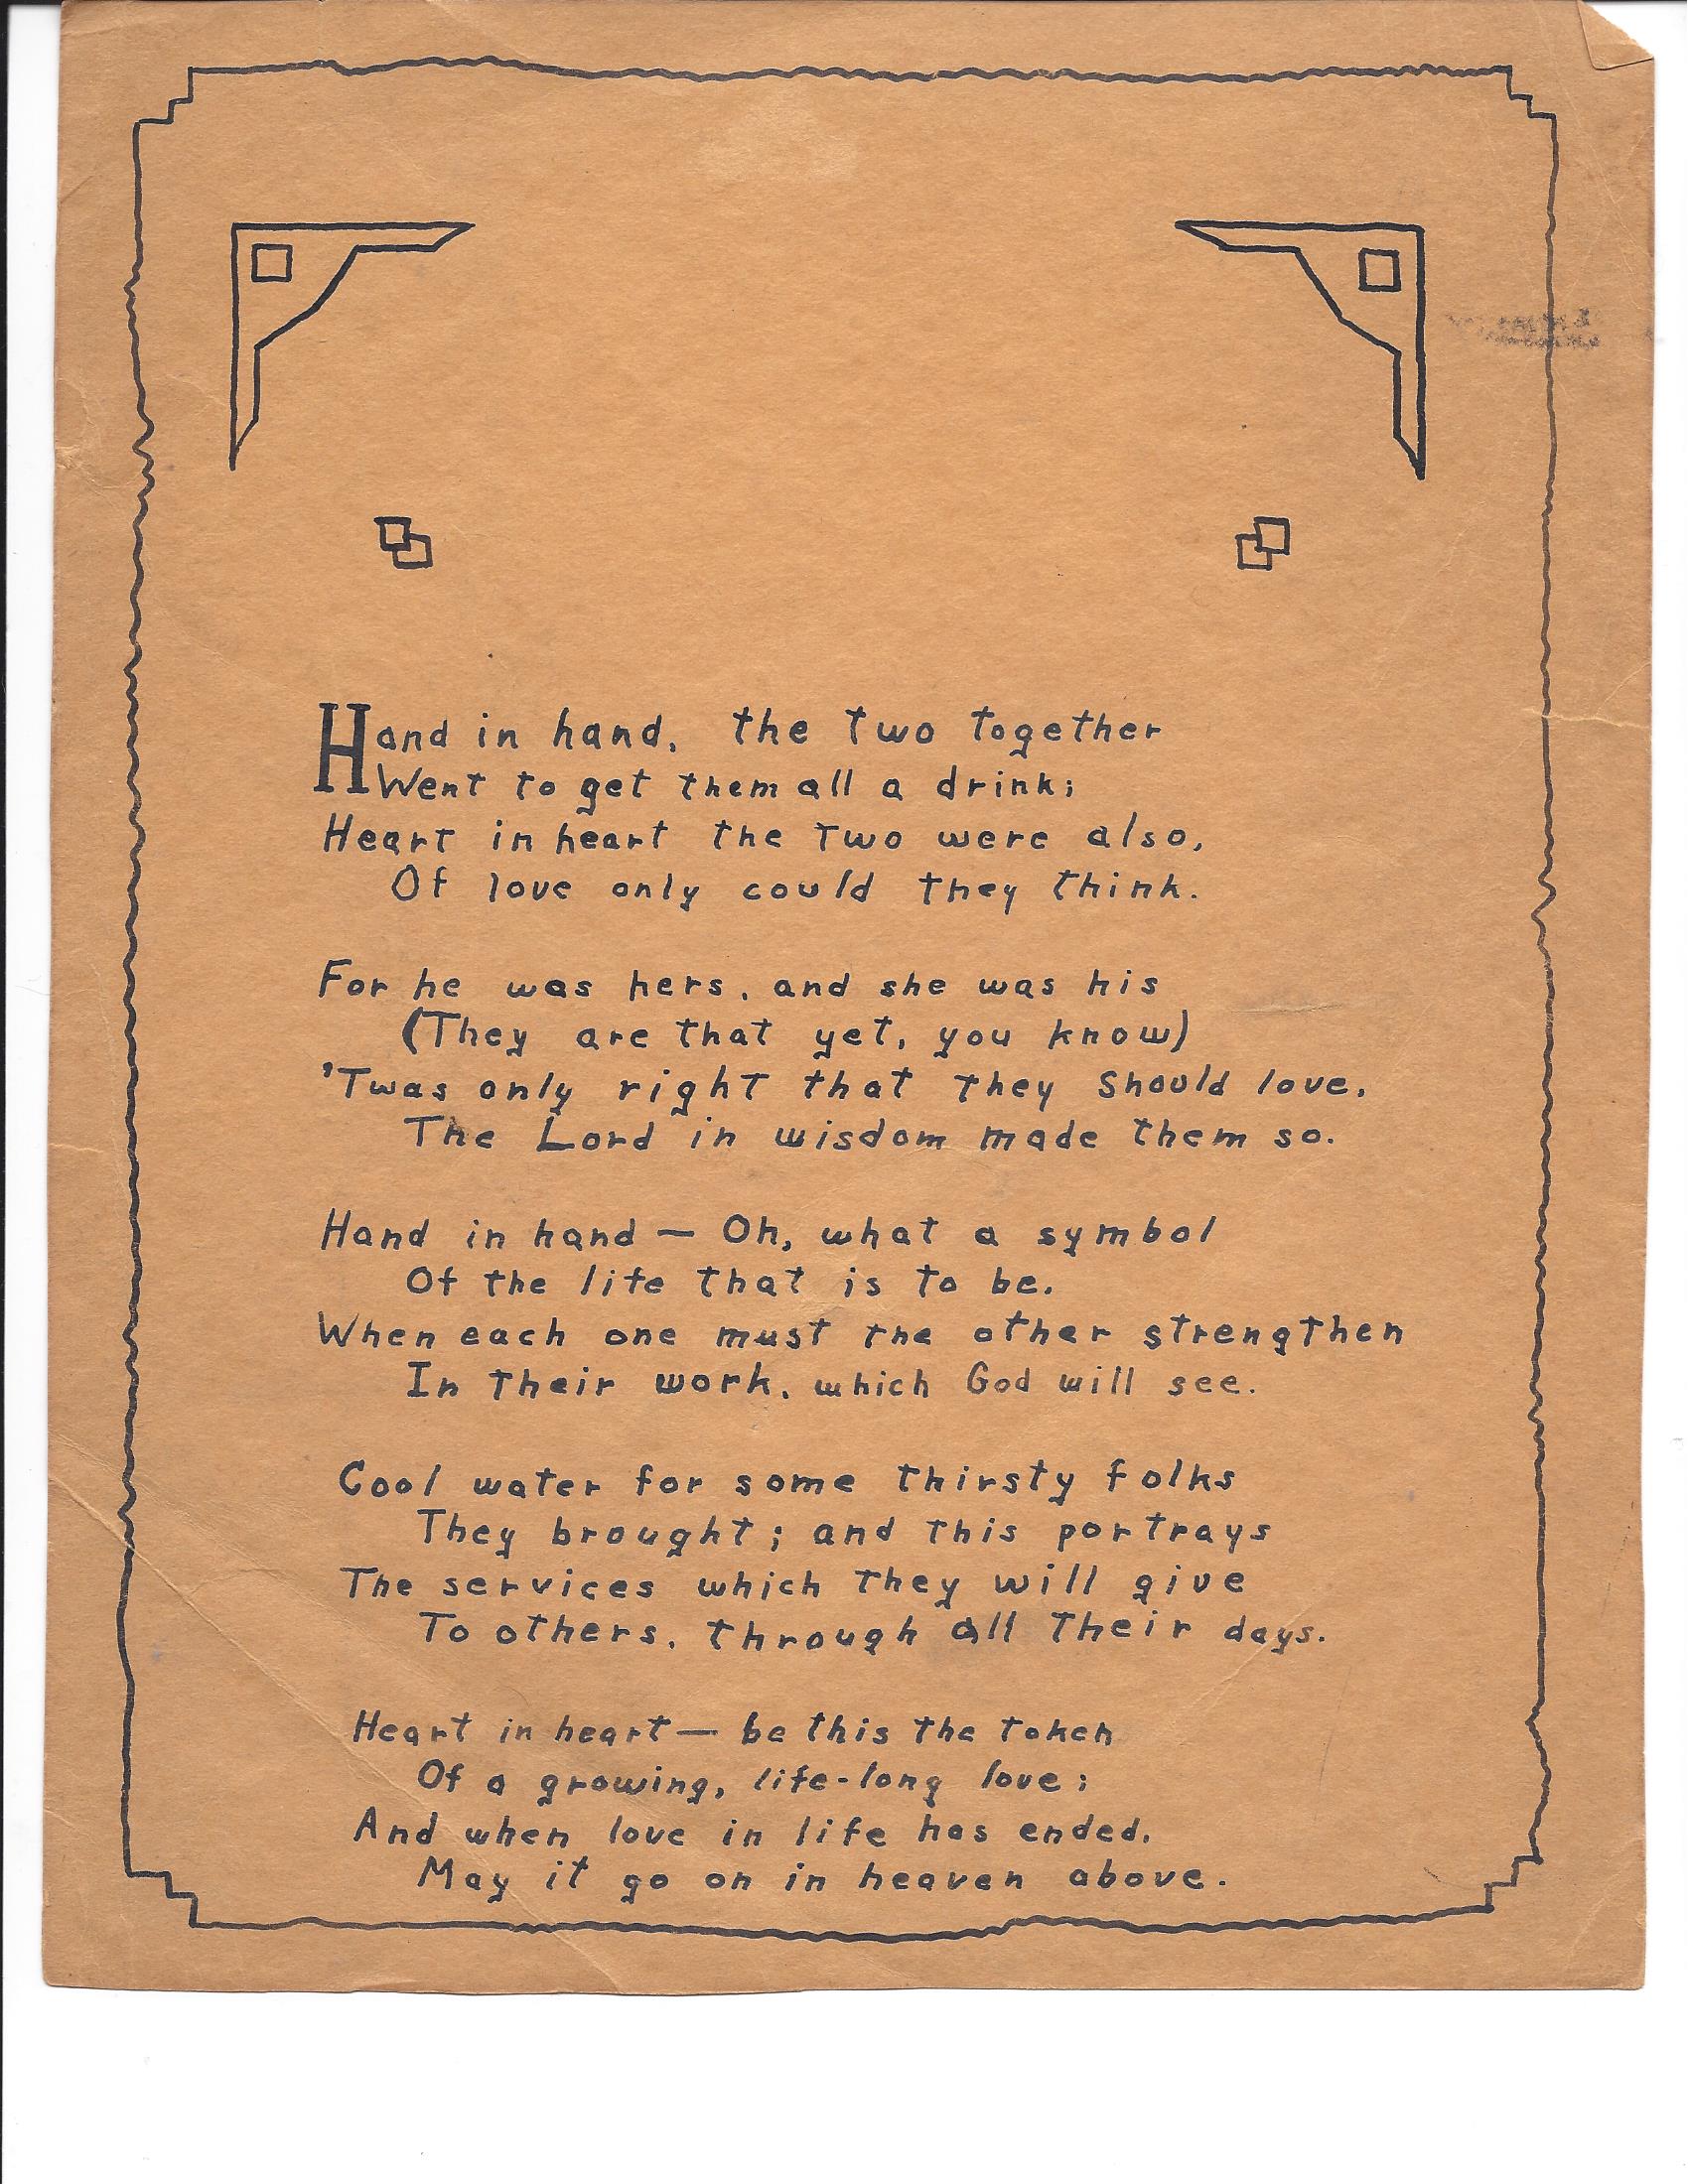 Hand in hand, the two together
Went to get them all a drink;
Heart in heart the two were also,
Of love only could they think.
For he was hers, and she was his
(They are that yet, you know)
'Twas only right that they should love,
The Lord in wisdom made them so.
Hand in hand — Oh, what a symbol
Of the life that is to be,
When each one must the other strengthen
In their work, which God will see.
Cool water for some thirsty folks
They brought; and this portrays
The services which they will give
To others, through all their days.
Heart in heart — be this the token
Of a growing, life-long love;
And when love in life has ended,
May it go on in heaven above.